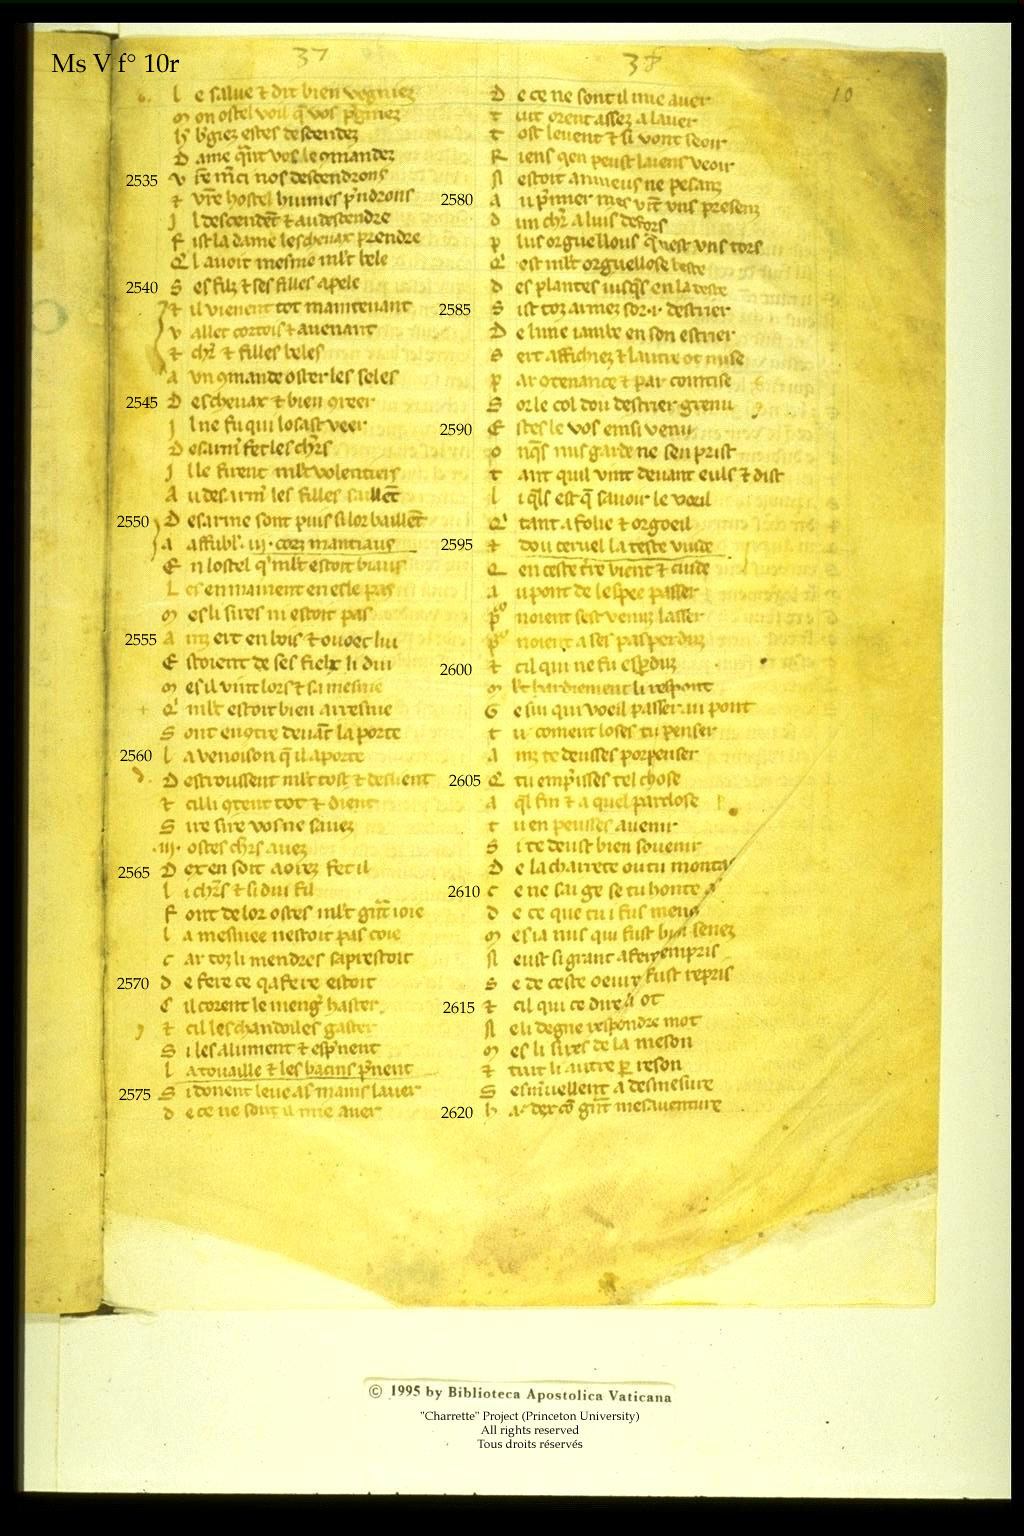 Ms V f° 10r
37
38
10
L e salue ⁊ dit bien vegniez
M on ostel voil q̃ vos p̃gniez
H b̾giez estes descendez
D ame q̃nt vos le ꝯmandez
2535 V r̃e m̃ci nos descendrons
⁊ vr̃e hostel huimes p̃ndrons
I l descendẽt ⁊ au descendre
F ist la dame les cheuax prendre
Q̾ l auoit mesnie ml̃t bele
2540 S es filz ⁊ ses filles apele
⁊ il vienent tot maintenant
V allet cortois ⁊ auenant
⁊ chr̃ ⁊ filles beles
A vn ꝯmande oster les seles
2545 D es cheuax ⁊ bien ꝯreer
I l ne fu qui losast veer
D esarm̃ fet les chr̃s
I l le firent ml̃t volentiers
A u desarm̃ les filles saillẽt
2550 D esarme sont puis si lor baillẽt
A affubl̾ .iij. corz mantiaus
E n lostel q̾ ml̃t estoit biaus
L es enmainent en es le pas
M es li sires ni estoit pas
2555 A inz ert en bois ⁊ ouoec lui
E stoient de ses fielx li dui
M es il vint lors ⁊ sa mesnie
Q̾ ml̃t estoit bien arresnie
S ont encꝯtre deuãt la porte
2560 L a venoison q̃ il aporte
D estroussent ml̃t tost ⁊ deslient
⁊ cil li ꝯtent tot ⁊ dient
S ire sire vos ne sauez
.iij. ostes chr̃s auez
2565 D ex en soit aorez fet il
L i chr̃s ⁊ si dui fil
F ont de lor ostes ml̃t grñt ioie
L a mesniee nestoit pas coie
C ar toz li mendres saprestoit
2570 D e fere ce q̾ a fere estoit
C il corent le meng̾ haster
⁊ cil les chandoiles gaster
S i les alument ⁊ esp̃nent
L a touaille ⁊ les bacins p̃nent
2575 S i donent leue as mains lauer
D e ce ne sont il mie auer
D e ce ne sont il mie auer
T uit orent assez a lauer
T ost leuent ⁊ si vont seoir
R iens qen peust laiens veoir
N estoit anuieus ne pesanz
2580 A u p̃mier mes vĩt vns presenz
D un chr̃ a luis defors
P lus orguellous q̃ nest vns tors
Q̾ est ml̃t orguellose beste
D es plantes iusq̃s en la teste
2585 S ist toz armez sor .i. destrier
D e lune iambe en son estrier
S ert affichiez ⁊ lautre ot mise
P ar ꝯtenance ⁊ par cointise
S or le col dou destrier grenu
2590 E stes le vos einsi venu
O nq̃s nus garde ne sen prist
T ant quil vint deuant euls ⁊ dist
L i q̃ls est q̃ sauoir le voeil
Q̾ tant a folie ⁊ orgoeil
2595 ⁊ dou ceruel la teste vuide
Q en ceste t̃re vient ⁊ cuide
A u pont de lespee passer
P̾ noient sest venuz lasser
P̾ noient a ses pas perduz
2600 ⁊ cil qui ne fu esp̃duz
M l̃t hardiement li respont
G e sui qui voeil passer au pont
T u coment loses tu penser
A inz te deusses porpenser
2605 Q̾ tu emp̃isses tel chose
A q̃l fin ⁊ a quel parclose
T u en peusses auenir
S i te deust bien souenir
D e la charrete ou tu montas
2610 C e ne sai ge se tu honte a
D e ce que tu i fus mene
M es ia nus qui fust bien senez
N eust si grant afere empris
S e de ceste oeuure fust repris
2615 ⁊ cil qui ce dire li ot
N eli degne respondre mot
M es li sires de la meson
⁊ tuit li autre ꝑ reson
S esm̃uellent a desmesure
2620 H a dex cõ grñt mesauenture
© 1995 by Biblioteca Apostolica Vaticana
"Charrette" Project (Princeton University)
All rights reserved
Tous droits réservés